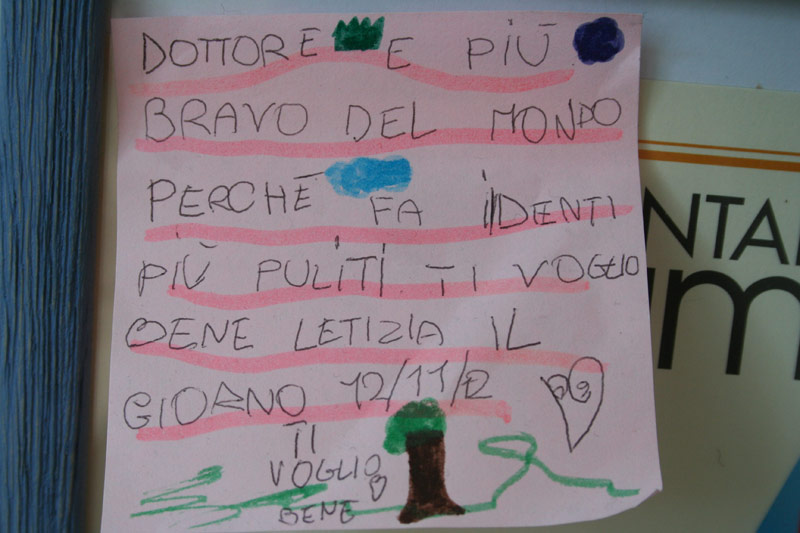 DOTTORE E PIÙ
BRAVO DEL MONDO
PERCHÉ FA I DENTI
PIÙ PULITI TI VOGLIO
BENE LETIZIA IL
GIORNO 12/11/12
TI
VOGLIO
BENE
NTA
um